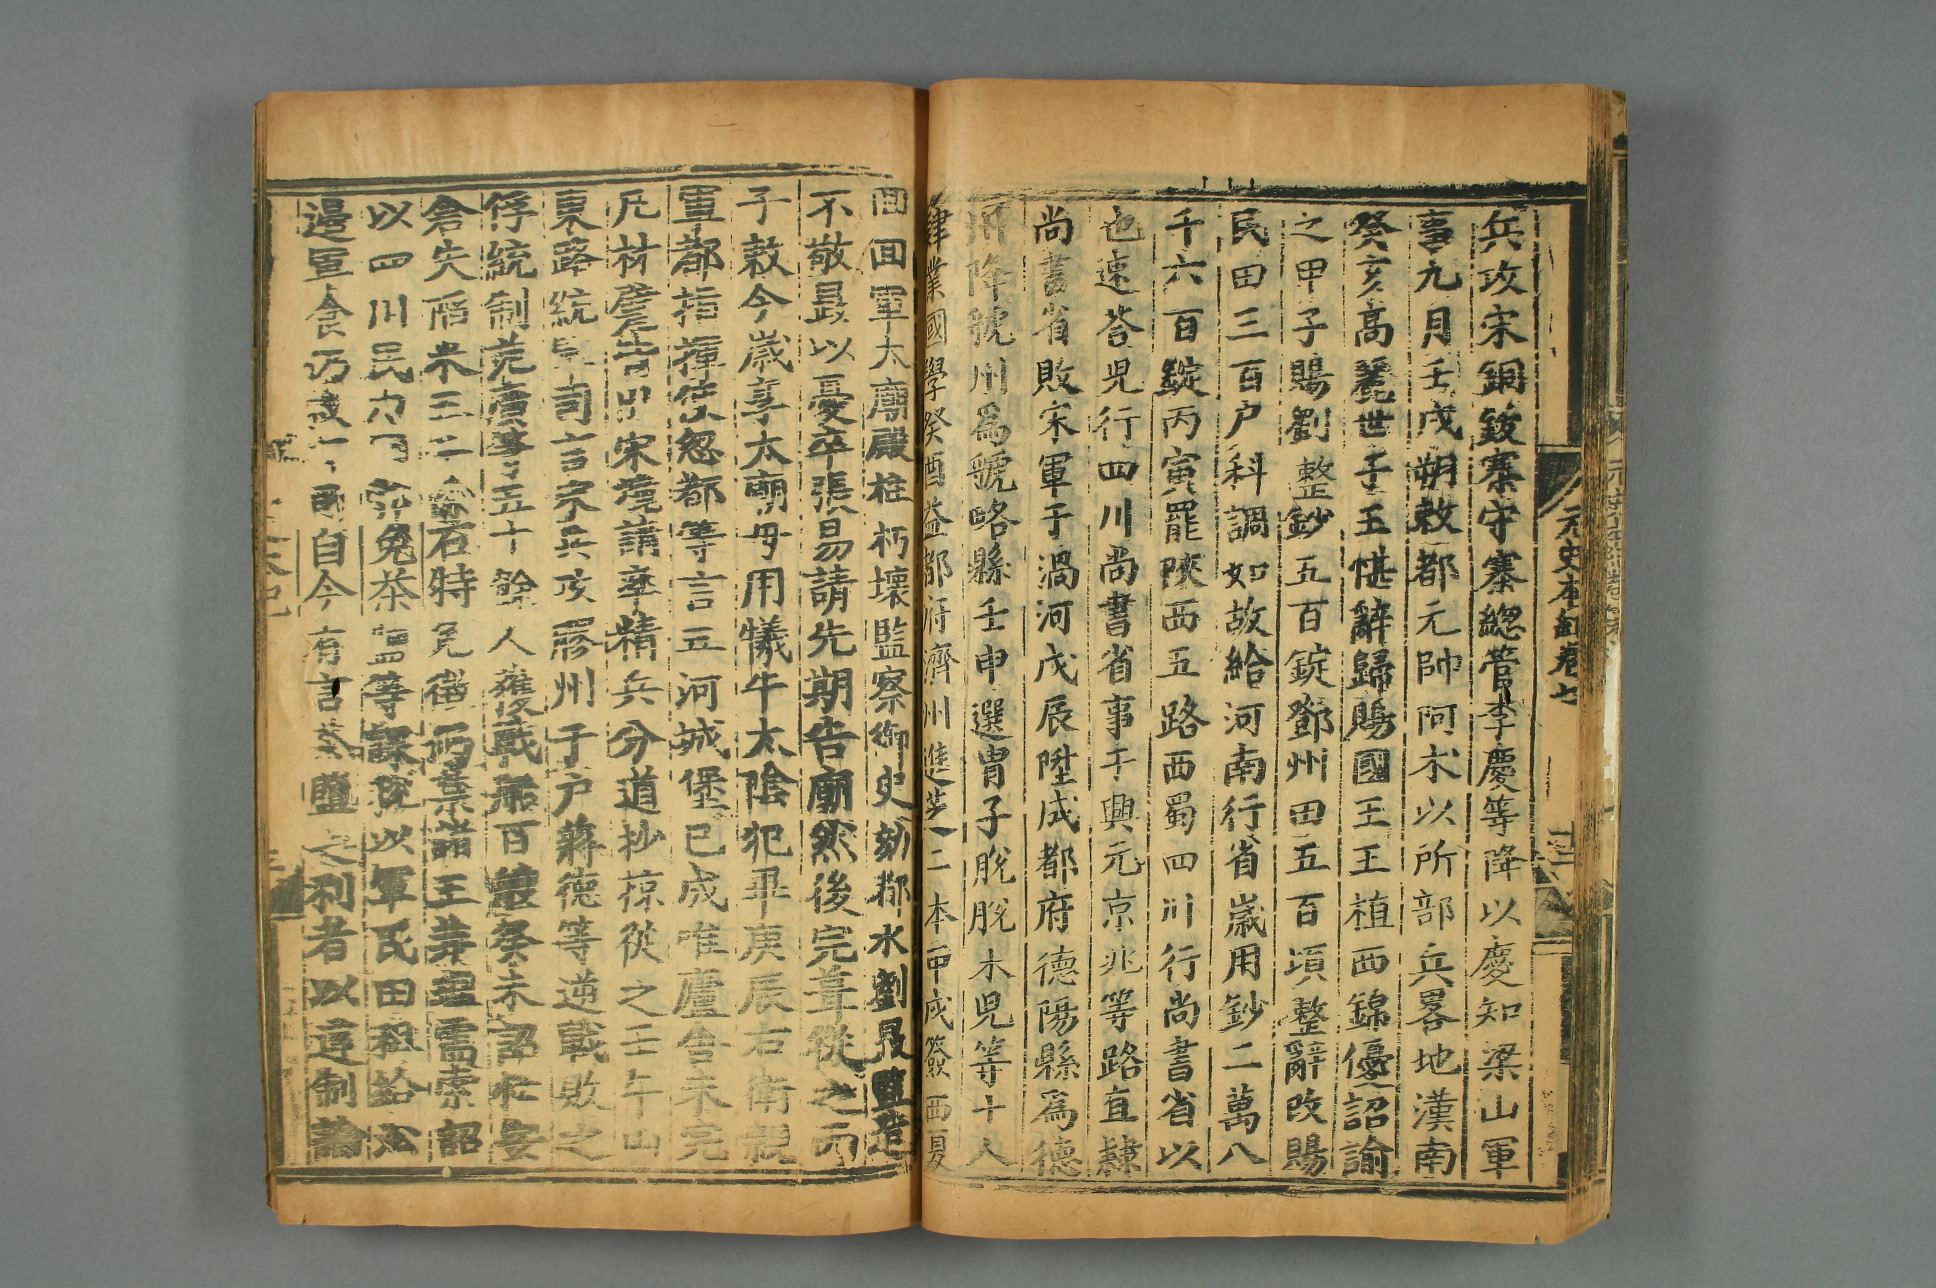 元史本紀卷七
兵攻宋銅鈸寨守寨總管李慶等降以慶知梁山軍
事九月壬戌朔敕都元帥阿朮以所部兵畧地漢南
癸亥高麗世子王愖辭歸賜國王王植西錦優詔諭
之甲子賜劉整鈔五百錠鄧州田五百頃整辭改賜
民田三百戶科調如故給河南行省歲用鈔二萬八
千六百錠丙寅罷陝西五路西蜀四川行尚書省以
也速荅兒行四川尚書省事于興元京兆等路直隷
尚書省敗宋軍于渦河戊辰陞成都府德陽縣爲德
州降虢州爲虢略縣壬申選胄子脫脫木兒等十人
肄業國學癸酉益都府濟州進芝二本甲戌簽西夏
回回軍太廟殿柱朽壞監察御史劾都水劉晸監造
不敬晸以憂卒張易請先期告廟然後完葺從之丙
子敕今歲享太廟毋用犧牛太陰犯畢庚辰右衛親
軍都指揮使忽都等言五河城堡已成唯廬舍未完
凡材甓皆出宋境請率精兵分道抄掠從之壬午山
東路統軍司言宋兵攻膠州千戶蔣德等逆戰敗之
俘統制范廣等五十餘人獲戰艦百艘癸未詔忙安
倉失陷米五千餘石特免徵仍禁諸王非理需索詔
以四川民力困弊免茶鹽等課稅以軍民田租給沿
邊軍食仍敕有司自今有言茶鹽之利者以違制論